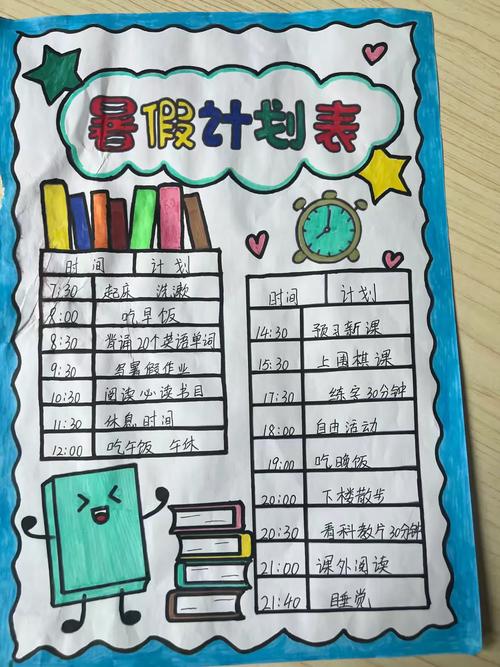 暑假计划表
时间 计划
7:30 起床 洗漱
8:00 吃早饭
8:30 背诵20个英语单词
9:30 写暑假作业
10:30 阅读必读书目
11:30 休息时间
12:00 吃午饭 午休
时间 计划
14:30 预习新课
15:30 上围棋课
17:30 练字30分钟
18:00 自由活动
19:00 吃晚饭
20:00 下楼散步
20:30 看科教片30分钟
21:00 课外阅读
21:40 睡觉